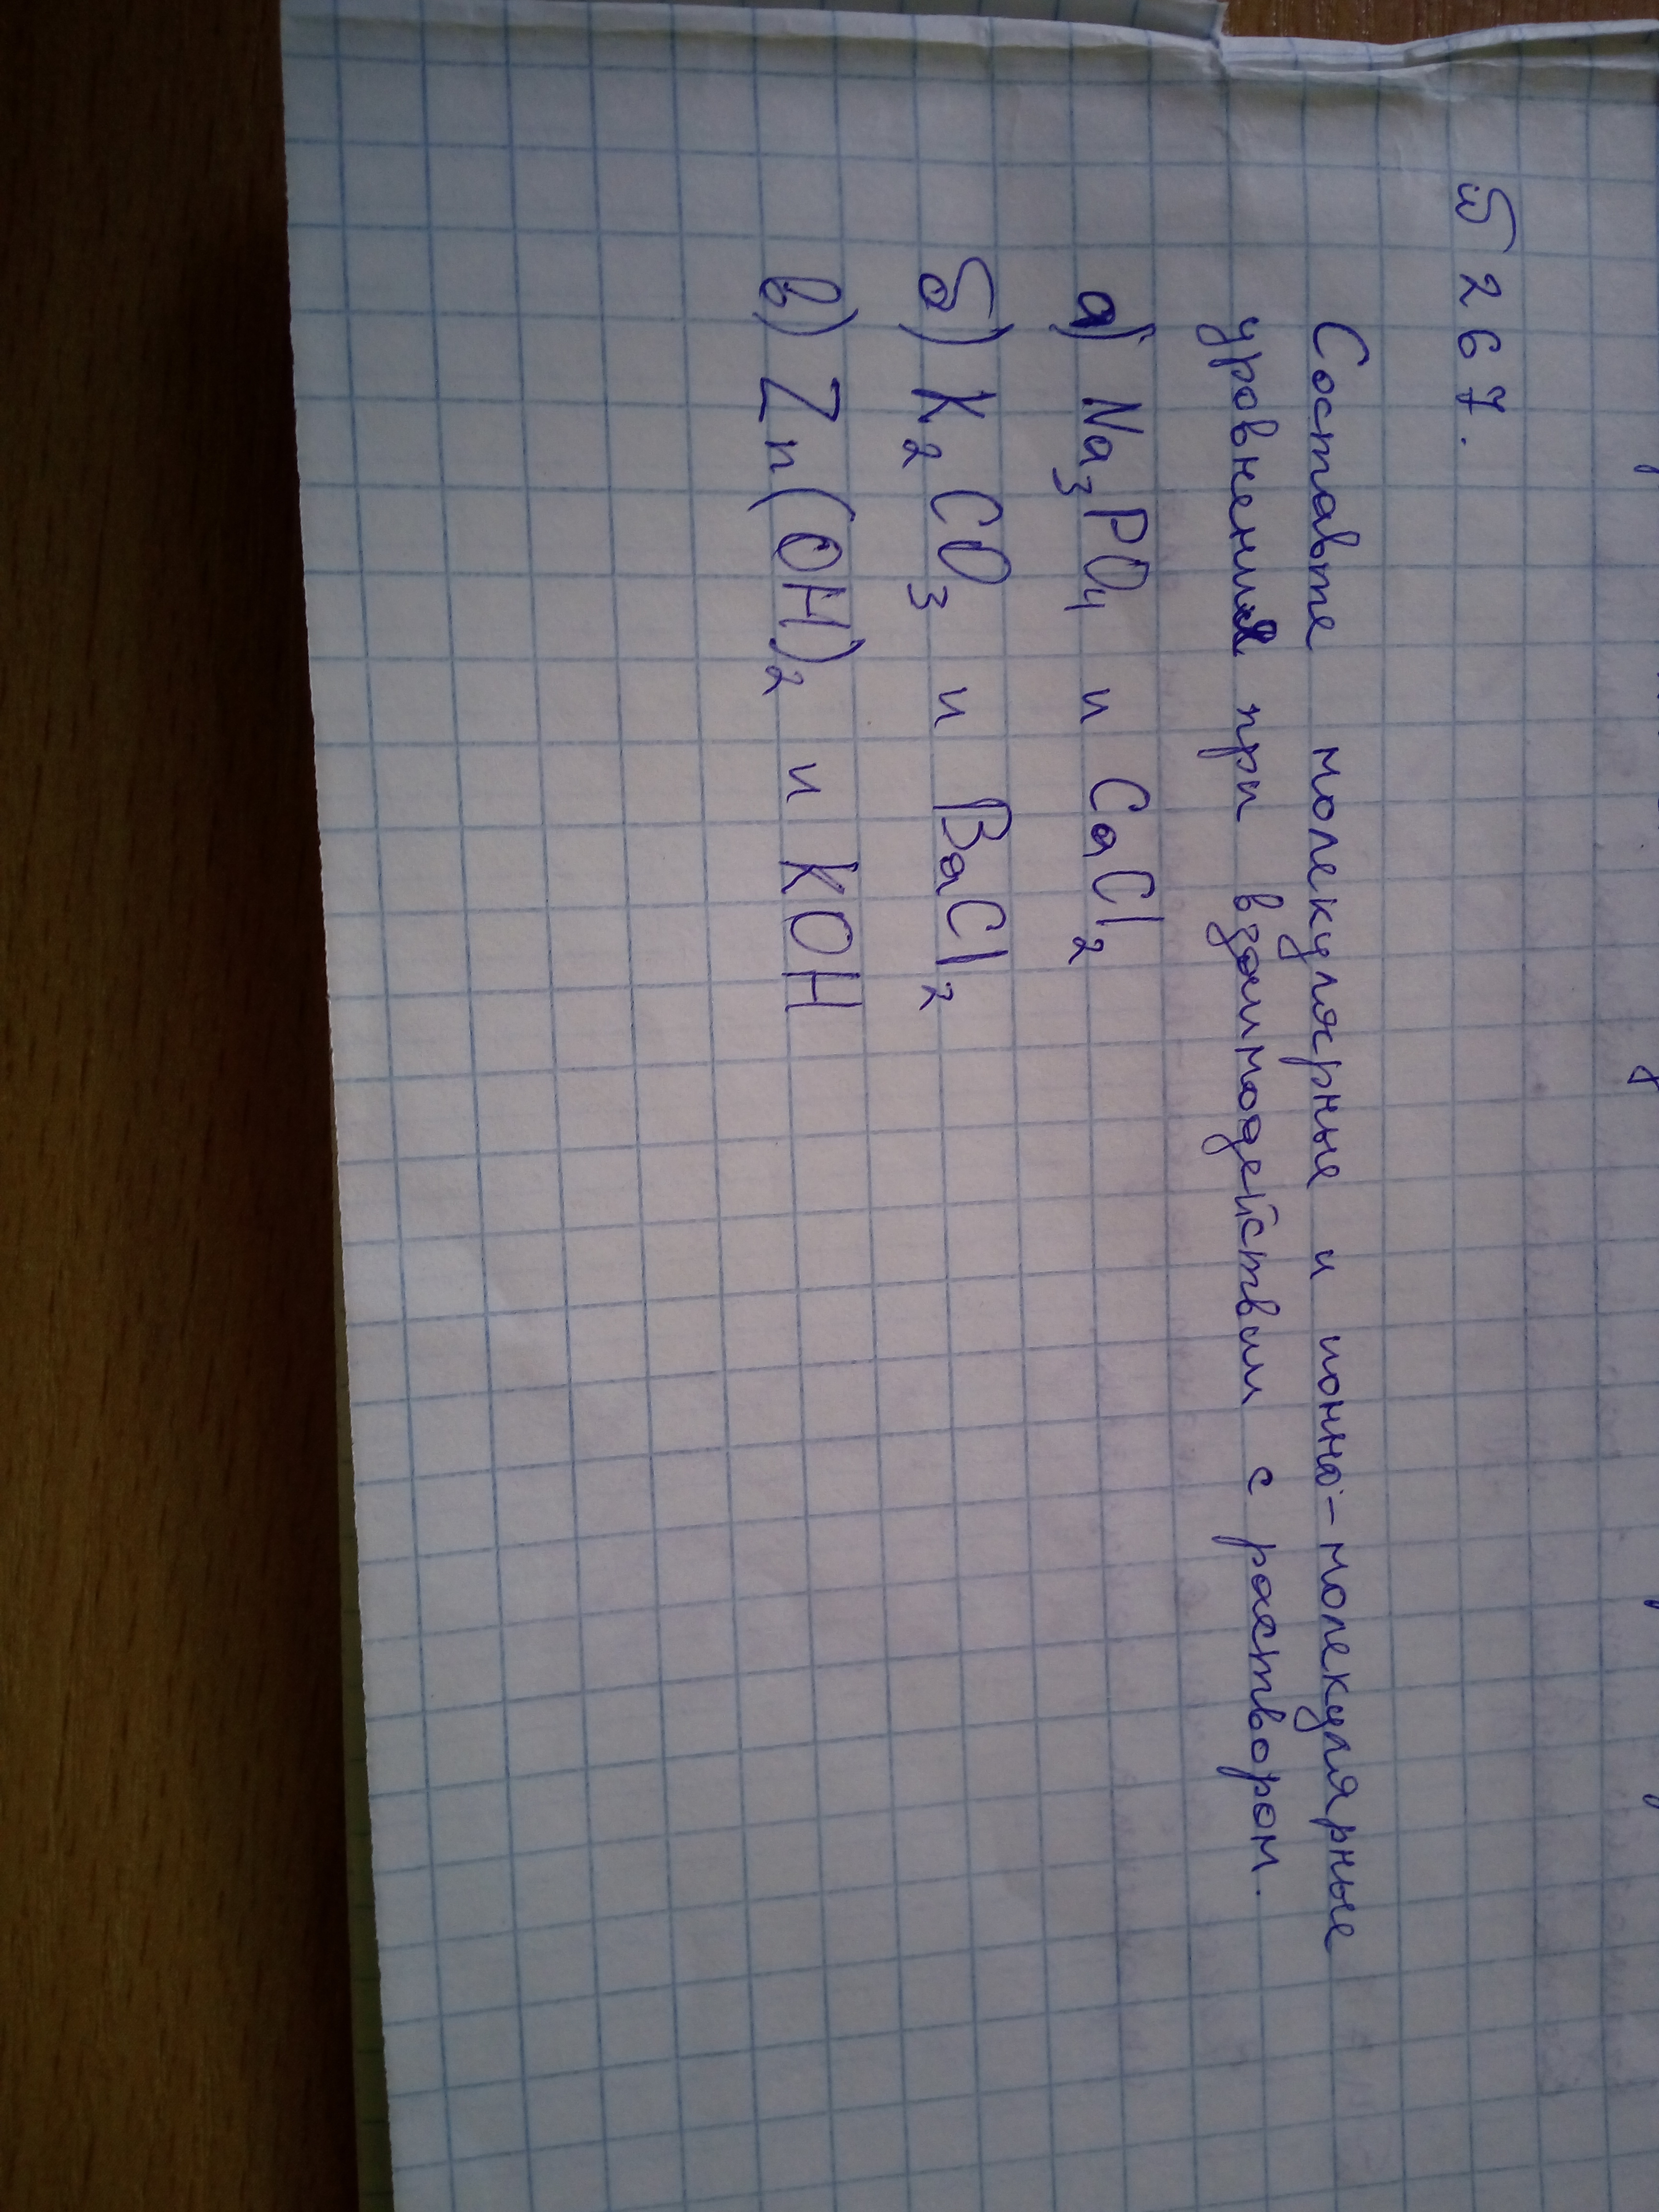 № 267.
Составьте молекулярные и ионно-молекулярные
уровнения при взаимодействии с раствором.
а) Na₃PO₄ и CaCl₂
б) K₂CO₃ и BaCl₂
в) Zn(OH)₂ и KOH